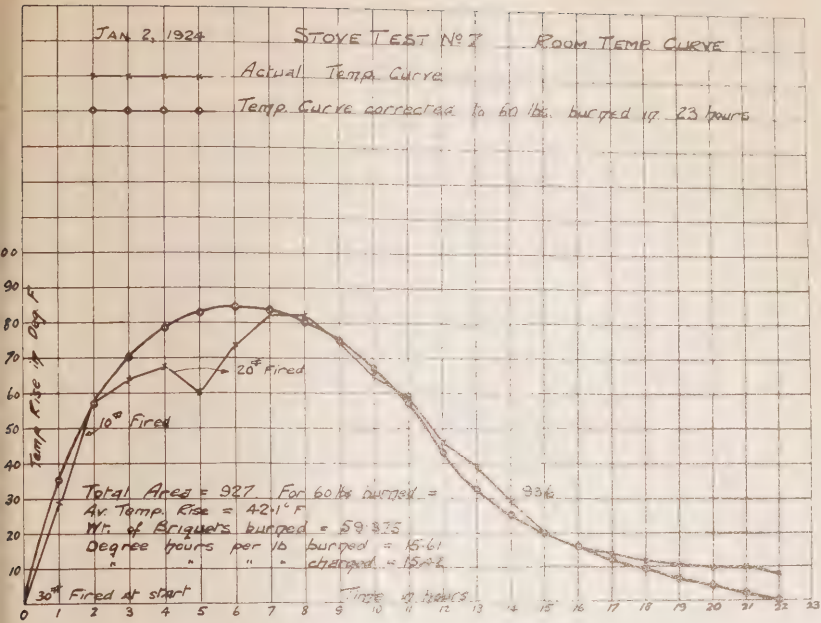 JAN 2, 1924 STOVE TEST Nº 7 ROOM TEMP. CURVE
Actual Temp. Curve
Temp. Curve corrected to 60 lbs. burned in 23 hours
00
90
80
70
60
50
40
30
20
10
Temp Rise in Deg. F
20# Fired
10# Fired
Total Area = 927 For 60 lbs burned = 936
Av. Temp. Rise = 42.1° F
Wt. of Briquets burned =
Degree hours per lb burned = 15.61
" " " " charged =
30# Fired at start Time in hours
0 1 2 3 4 5 6 7 8 9 10 11 12 13 14 15 16 17 18 19 20 21 22 23